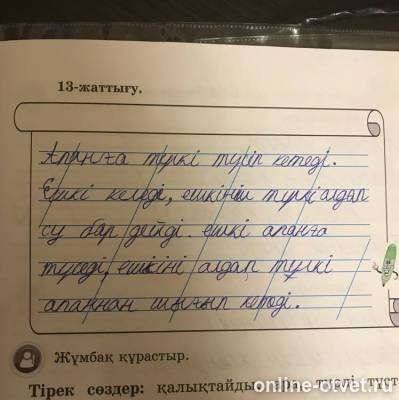 13-жаттығу.
Апанға түркі түсіп кетеді.
Ешкі келеді, ешкінің түркі алдап
су бар дейді. ешкі апанға
түседі, ешкіні алдап түлкі
апаннан шығып кетеді.
Жұмбақ құрастыр.
Тірек сөздер: қалықтайды,
online-otvet.ru